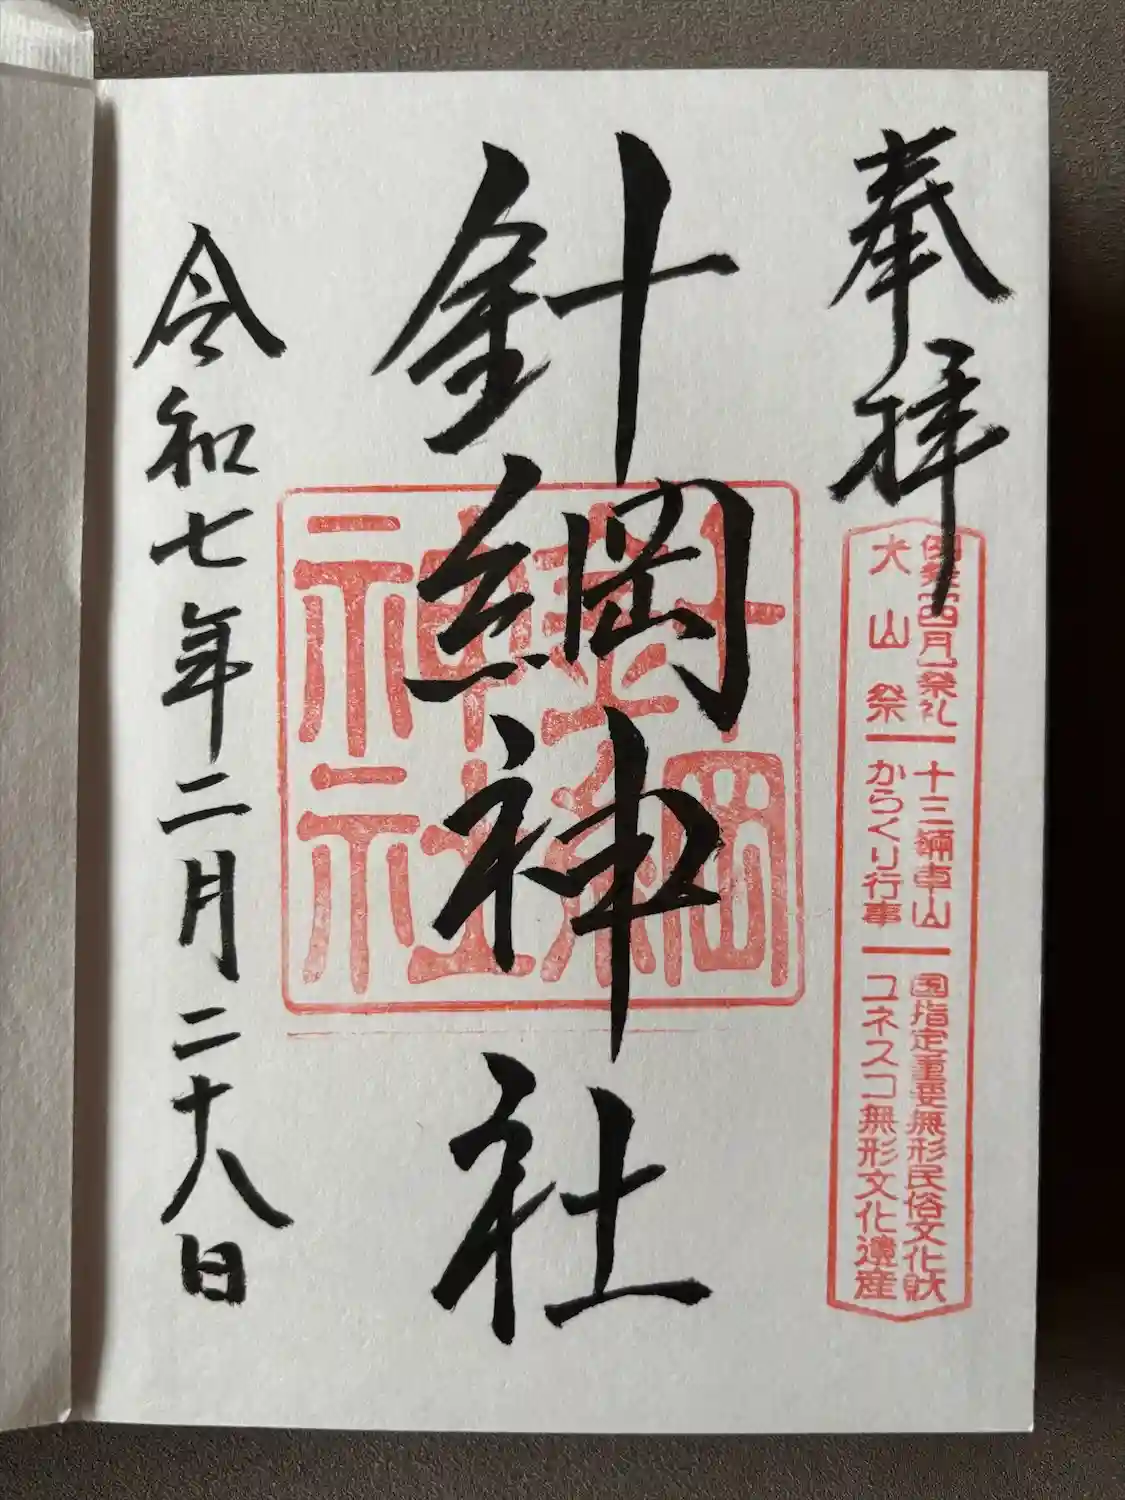 奉拝
例祭[四月]祭礼 十三輌車山 国指定重要無形民俗文化財
犬山祭 からくり行事 ユネスコ無形文化遺産
針綱神社
針綱
神社
令和七年二月二十八日